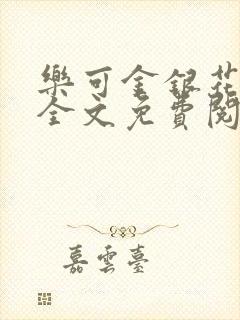 樂可金銀花
全文免費閱
嘉雲臺